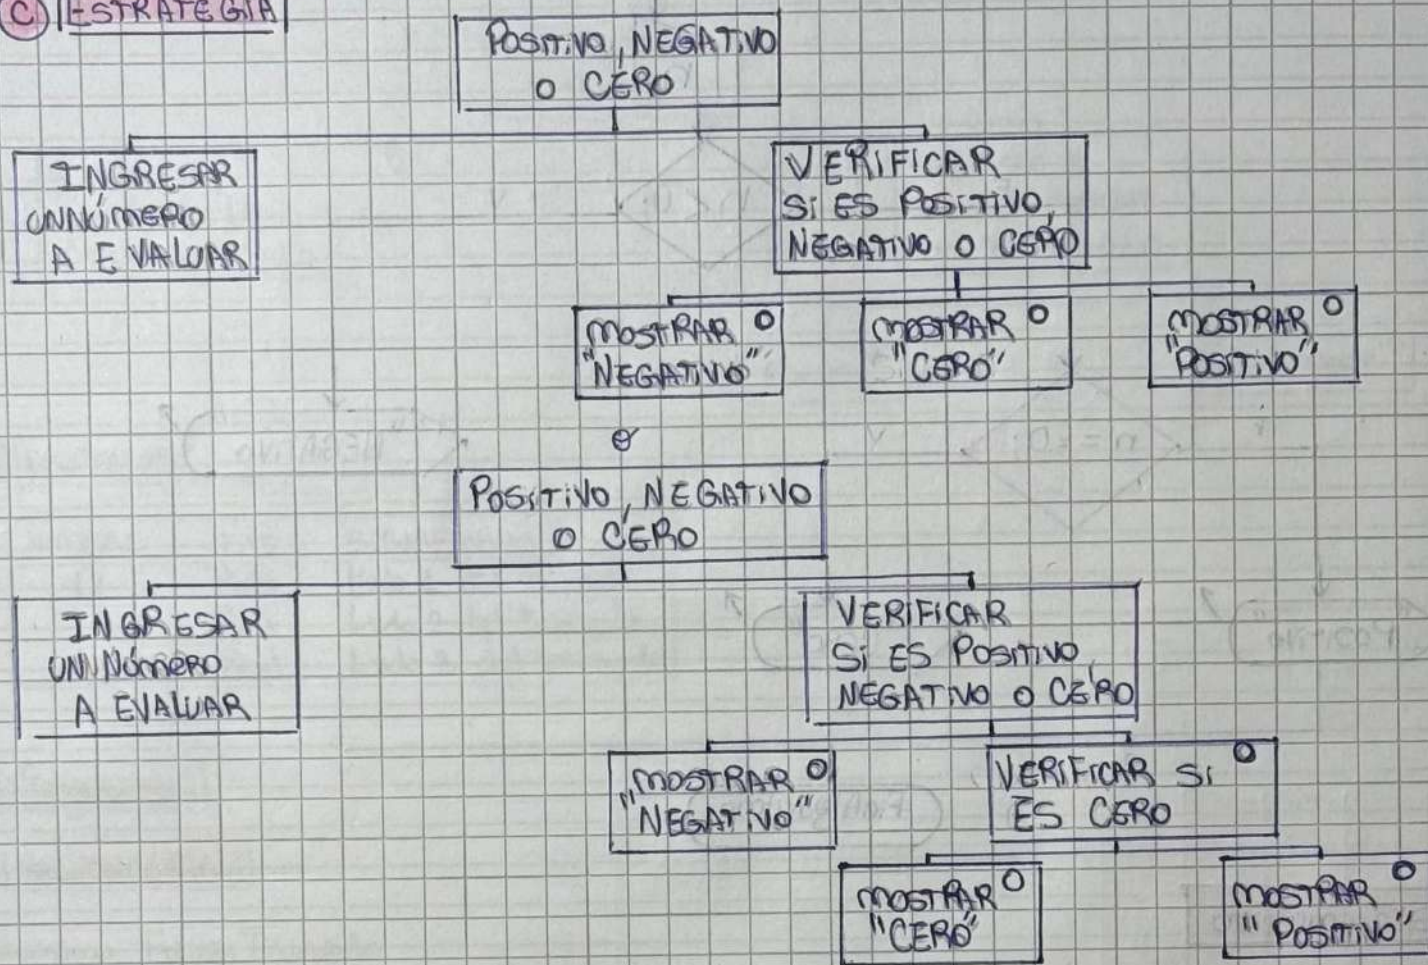 C) ESTRATEGIA
POSITIVO, NEGATIVO
O CERO
INGRESAR
UN NÚMERO
A EVALUAR
VERIFICAR
SI ES POSITIVO,
NEGATIVO O CERO
MOSTRAR O
"NEGATIVO"
MOSTRAR O
"CERO"
MOSTRAR O
"POSITIVO"
o
POSITIVO, NEGATIVO
O CERO
INGRESAR
UN NÚMERO
A EVALUAR
VERIFICAR
SI ES POSITIVO,
NEGATIVO O CERO
MOSTRAR O
"NEGATIVO"
VERIFICAR SI O
ES CERO
MOSTRAR O
"CERO"
MOSTRAR O
"POSITIVO"